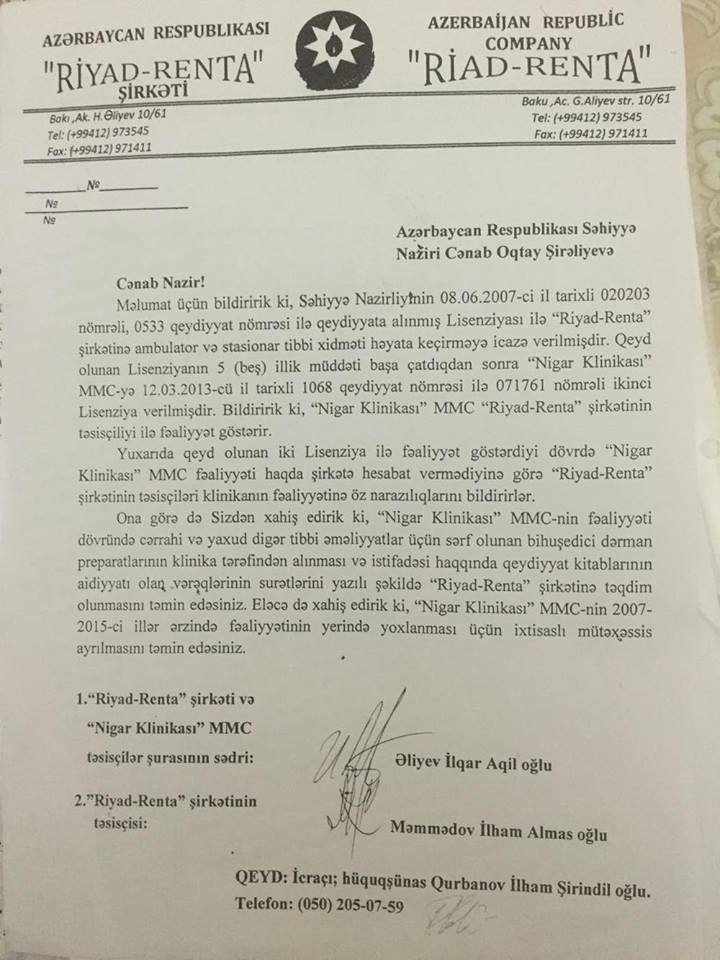 AZƏRBAYCAN RESPUBLIKASI
"RİYAD-RENTA"
ŞİRKƏTİ
Bakı ,Ak. H.Əliyev 10/61
Tel: (+99412) 973545
Fax: (+99412) 971411
AZERBAİJAN REPUBLIC
COMPANY
"RİAD-RENTA"
Baku ,Ac. G.Aliyev str. 10/61
Tel: (+99412) 973545
Fax: (+99412) 971411
________№________
№
№
Azərbaycan Respublikası Səhiyyə
Naziri Cənab Oqtay Şirəliyevə
Cənab Nazir!
Məlumat üçün bildiririk ki, Səhiyyə Nazirliyinin 08.06.2007-ci il tarixli 020203
nömrəli, 0533 qeydiyyat nömrəsi ilə qeydiyyata alınmış Lisenziyası ilə “Riyad-Renta”
şirkətinə ambulator və stasionar tibbi xidməti həyata keçirməyə icazə verilmişdir. Qeyd
olunan Lisenziyanın 5 (beş) illik müddəti başa çatdıqdan sonra “Nigar Klinikası”
MMC-yə 12.03.2013-cü il tarixli 1068 qeydiyyat nömrəsi ilə 071761 nömrəli ikinci
Lisenziya verilmişdir. Bildiririk ki, “Nigar Klinikası” MMC “Riyad-Renta” şirkətinin
təsisçiliyi ilə fəaliyyət göstərir.
Yuxarıda qeyd olunan iki Lisenziya ilə fəaliyyət göstərdiyi dövrdə “Nigar
Klinikası” MMC fəaliyyəti haqda şirkətə hesabat vermədiyinə görə “Riyad-Renta”
şirkətinin təsisçiləri klinikanın fəaliyyətinə öz narazılıqlarını bildirirlər.
Ona görə də Sizdən xahiş edirik ki, “Nigar Klinikası” MMC-nin fəaliyyəti
dövründə cərrahi və yaxud digər tibbi əməliyyatlar üçün sərf olunan bihuşedici dərman
preparatlarının klinika tərəfindən alınması və istifadəsi haqqında qeydiyyat kitablarının
aidiyyatı olan vərəqlərinin surətlərini yazılı şəkildə “Riyad-Renta” şirkətinə təqdim
olunmasını təmin edəsiniz. Eləcə də xahiş edirik ki, “Nigar Klinikası” MMC-nin 2007-
2015-ci illər ərzində fəaliyyətinin yerində yoxlanması üçün ixtisaslı mütəxəssis
ayrılmasını təmin edəsiniz.
1.“Riyad-Renta” şirkəti və
“Nigar Klinikası” MMC
təsisçilər şurasının sədri:
Əliyev İlqar Aqil oğlu
2.”Riyad-Renta” şirkətinin
təsisçisi:
Məmmədov İlham Almas oğlu
QEYD: İcraçı; hüquqşünas Qurbanov İlham Şirindil oğlu.
Telefon: (050) 205-07-59